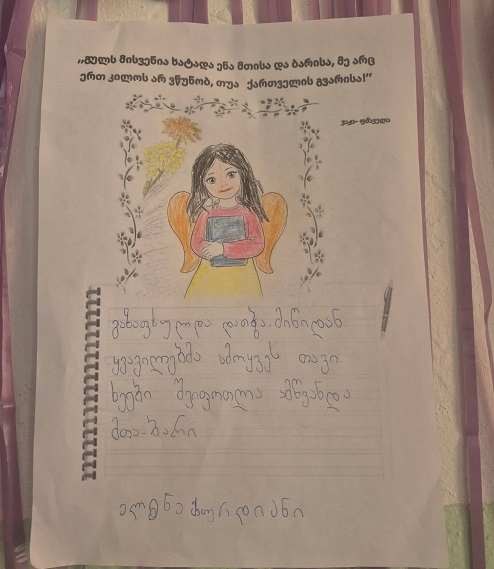 „გულს მისვენია ხატადა ენა მთისა და ბარისა, მე არც
ერთ კილოს არ ვწუნობ, თუა ქართველის გვარისა!“
ვაჟა- ფშაველა
გაზაფხულდა დათბა. მიწიდან
ყვავილებმა ამოყვეს თავი.
ხეები შეიფოთლა ამწვანდა
მთა-ბარი
ელენე ქურდიანი